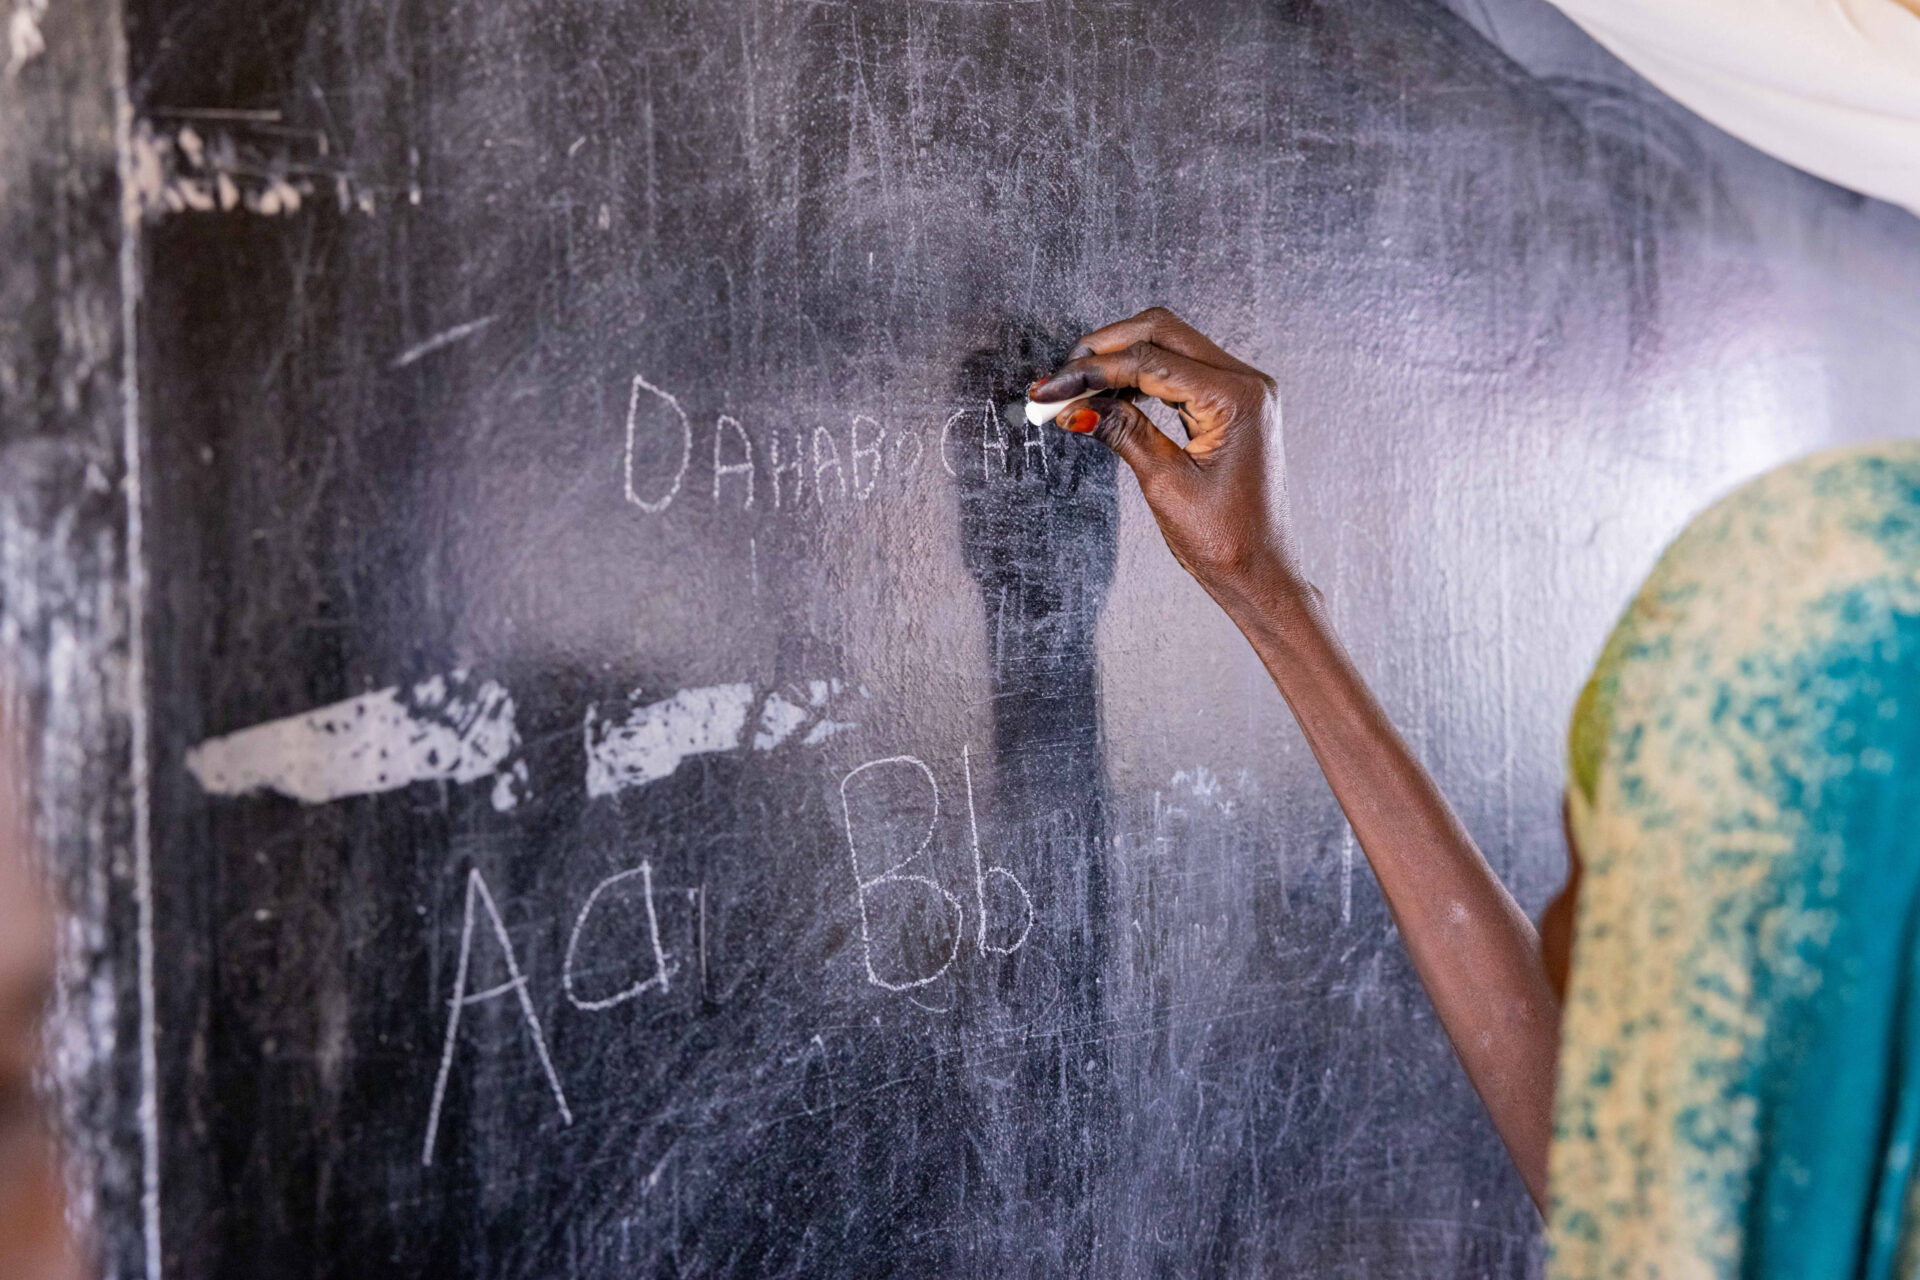 DAHABOCAA
Aa Bb